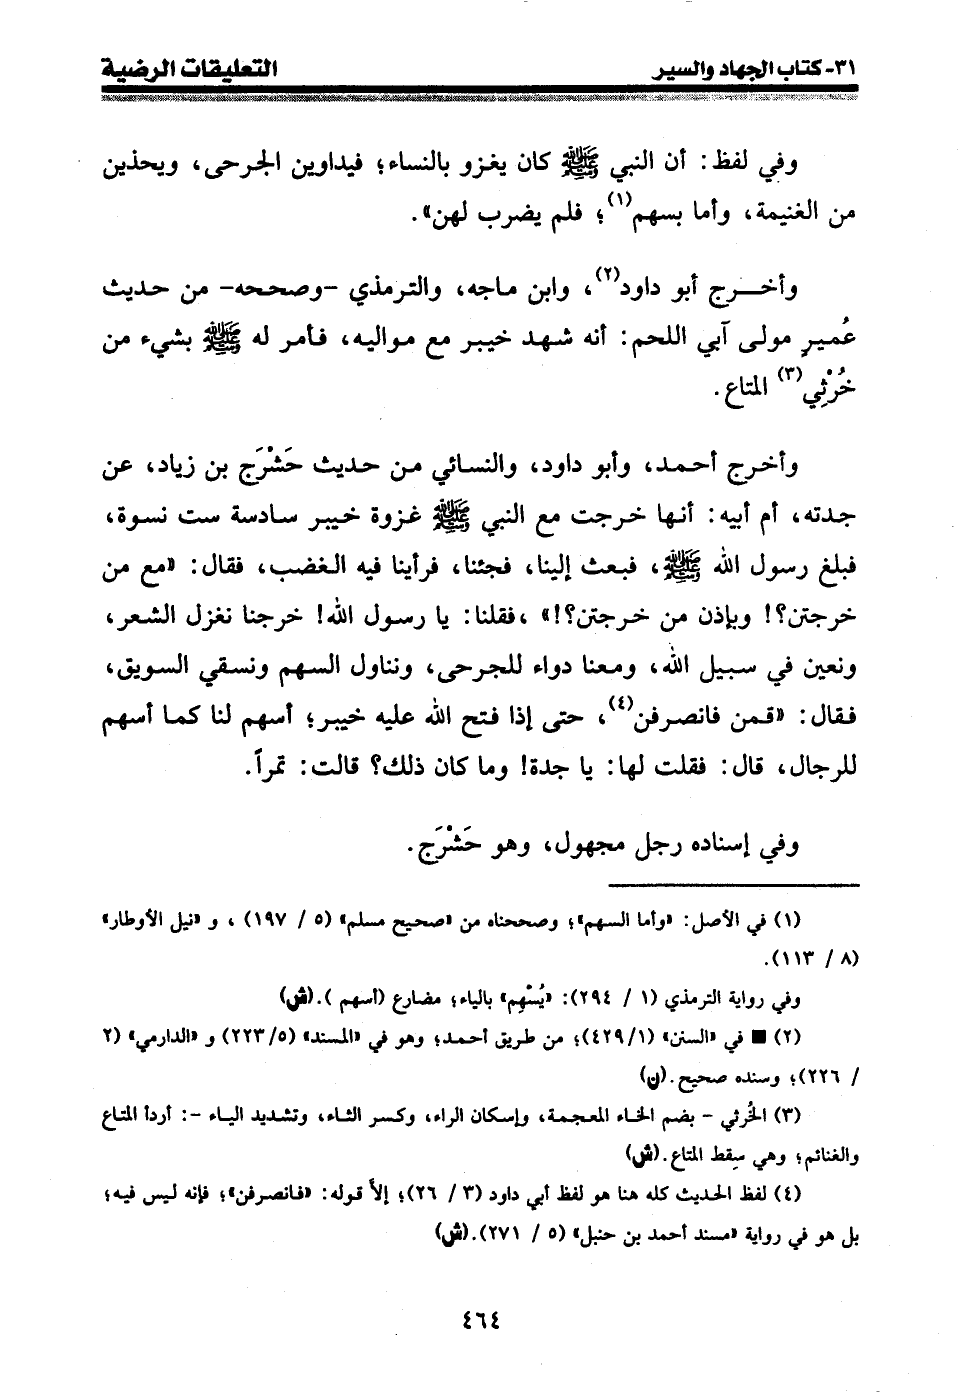 ٣١- كتاب الجهاد والسير التعليقات الرضية
وفي لفظ: أن النبي ﷺ كان يغزو بالنساء؛ فيداوين الجرحى، ويحذين
من الغنيمة، وأما بسهم(١)؛ فلم يضرب لهن».
وأخرج أبو داود(٢)، وابن ماجه، والترمذي -وصححه- من حديث
عُميرٍ مولى آبي اللحم: أنه شهد خيبر مع مواليه، فأمر له ﷺ بشيء من
خُرْثِي(٣) المتاع.
وأخرج أحمد، وأبو داود، والنسائي من حديث حَشْرَج بن زياد، عن
جدته، أم أبيه: أنها خرجت مع النبي ﷺ غزوة خيبر سادسة ست نسوة،
فبلغ رسول الله ﷺ، فبعث إلينا، فجئنا، فرأينا فيه الغضب، فقال: «مع من
خرجتن؟! وبإذن من خرجتن؟!» ،فقلنا: يا رسول الله! خرجنا نغزل الشعر،
ونعين في سبيل الله، ومعنا دواء للجرحى، ونناول السهم ونسقي السويق،
فقال: «قمن فانصرفن(٤)، حتى إذا فتح الله عليه خيبر؛ أسهم لنا كما أسهم
للرجال، قال: فقلت لها: يا جدة! وما كان ذلك؟ قالت: تمراً.
وفي إسناده رجل مجهول، وهو حَشْرَج.
(١) في الأصل: «وأما السهم»؛ وصححناه من «صحيح مسلم» (٥ / ١٩٧) ، و «نيل الأوطار»
(٨ / ١١٣).
وفي رواية الترمذي (١ / ٢٩٤): «يُسْهِم» بالياء؛ مضارع (أسهم ).(ش)
(٢) ■ في «السنن» (٤٢٩/١)؛ من طريق أحمد؛ وهو في «المسند» (٢٢٣/٥) و «الدارمي» (٢
/ ٢٢٦)؛ وسنده صحيح.(ن)
(٣) الخُرثي - بضم الخاء المعجمة، وإسكان الراء، وكسر الثاء، وتشديد الياء -: أردأ المتاع
والغنائم؛ وهي سِقط المتاع.(ش)
(٤) لفظ الحديث كله هنا هو لفظ أبي داود (٣ / ٢٦)؛ إلاَّ قوله: «فانصرفن»؛ فإنه ليس فيه؛
بل هو في رواية «مسند أحمد بن حنبل» (٥ / ٢٧١).(ش)
٤٦٤